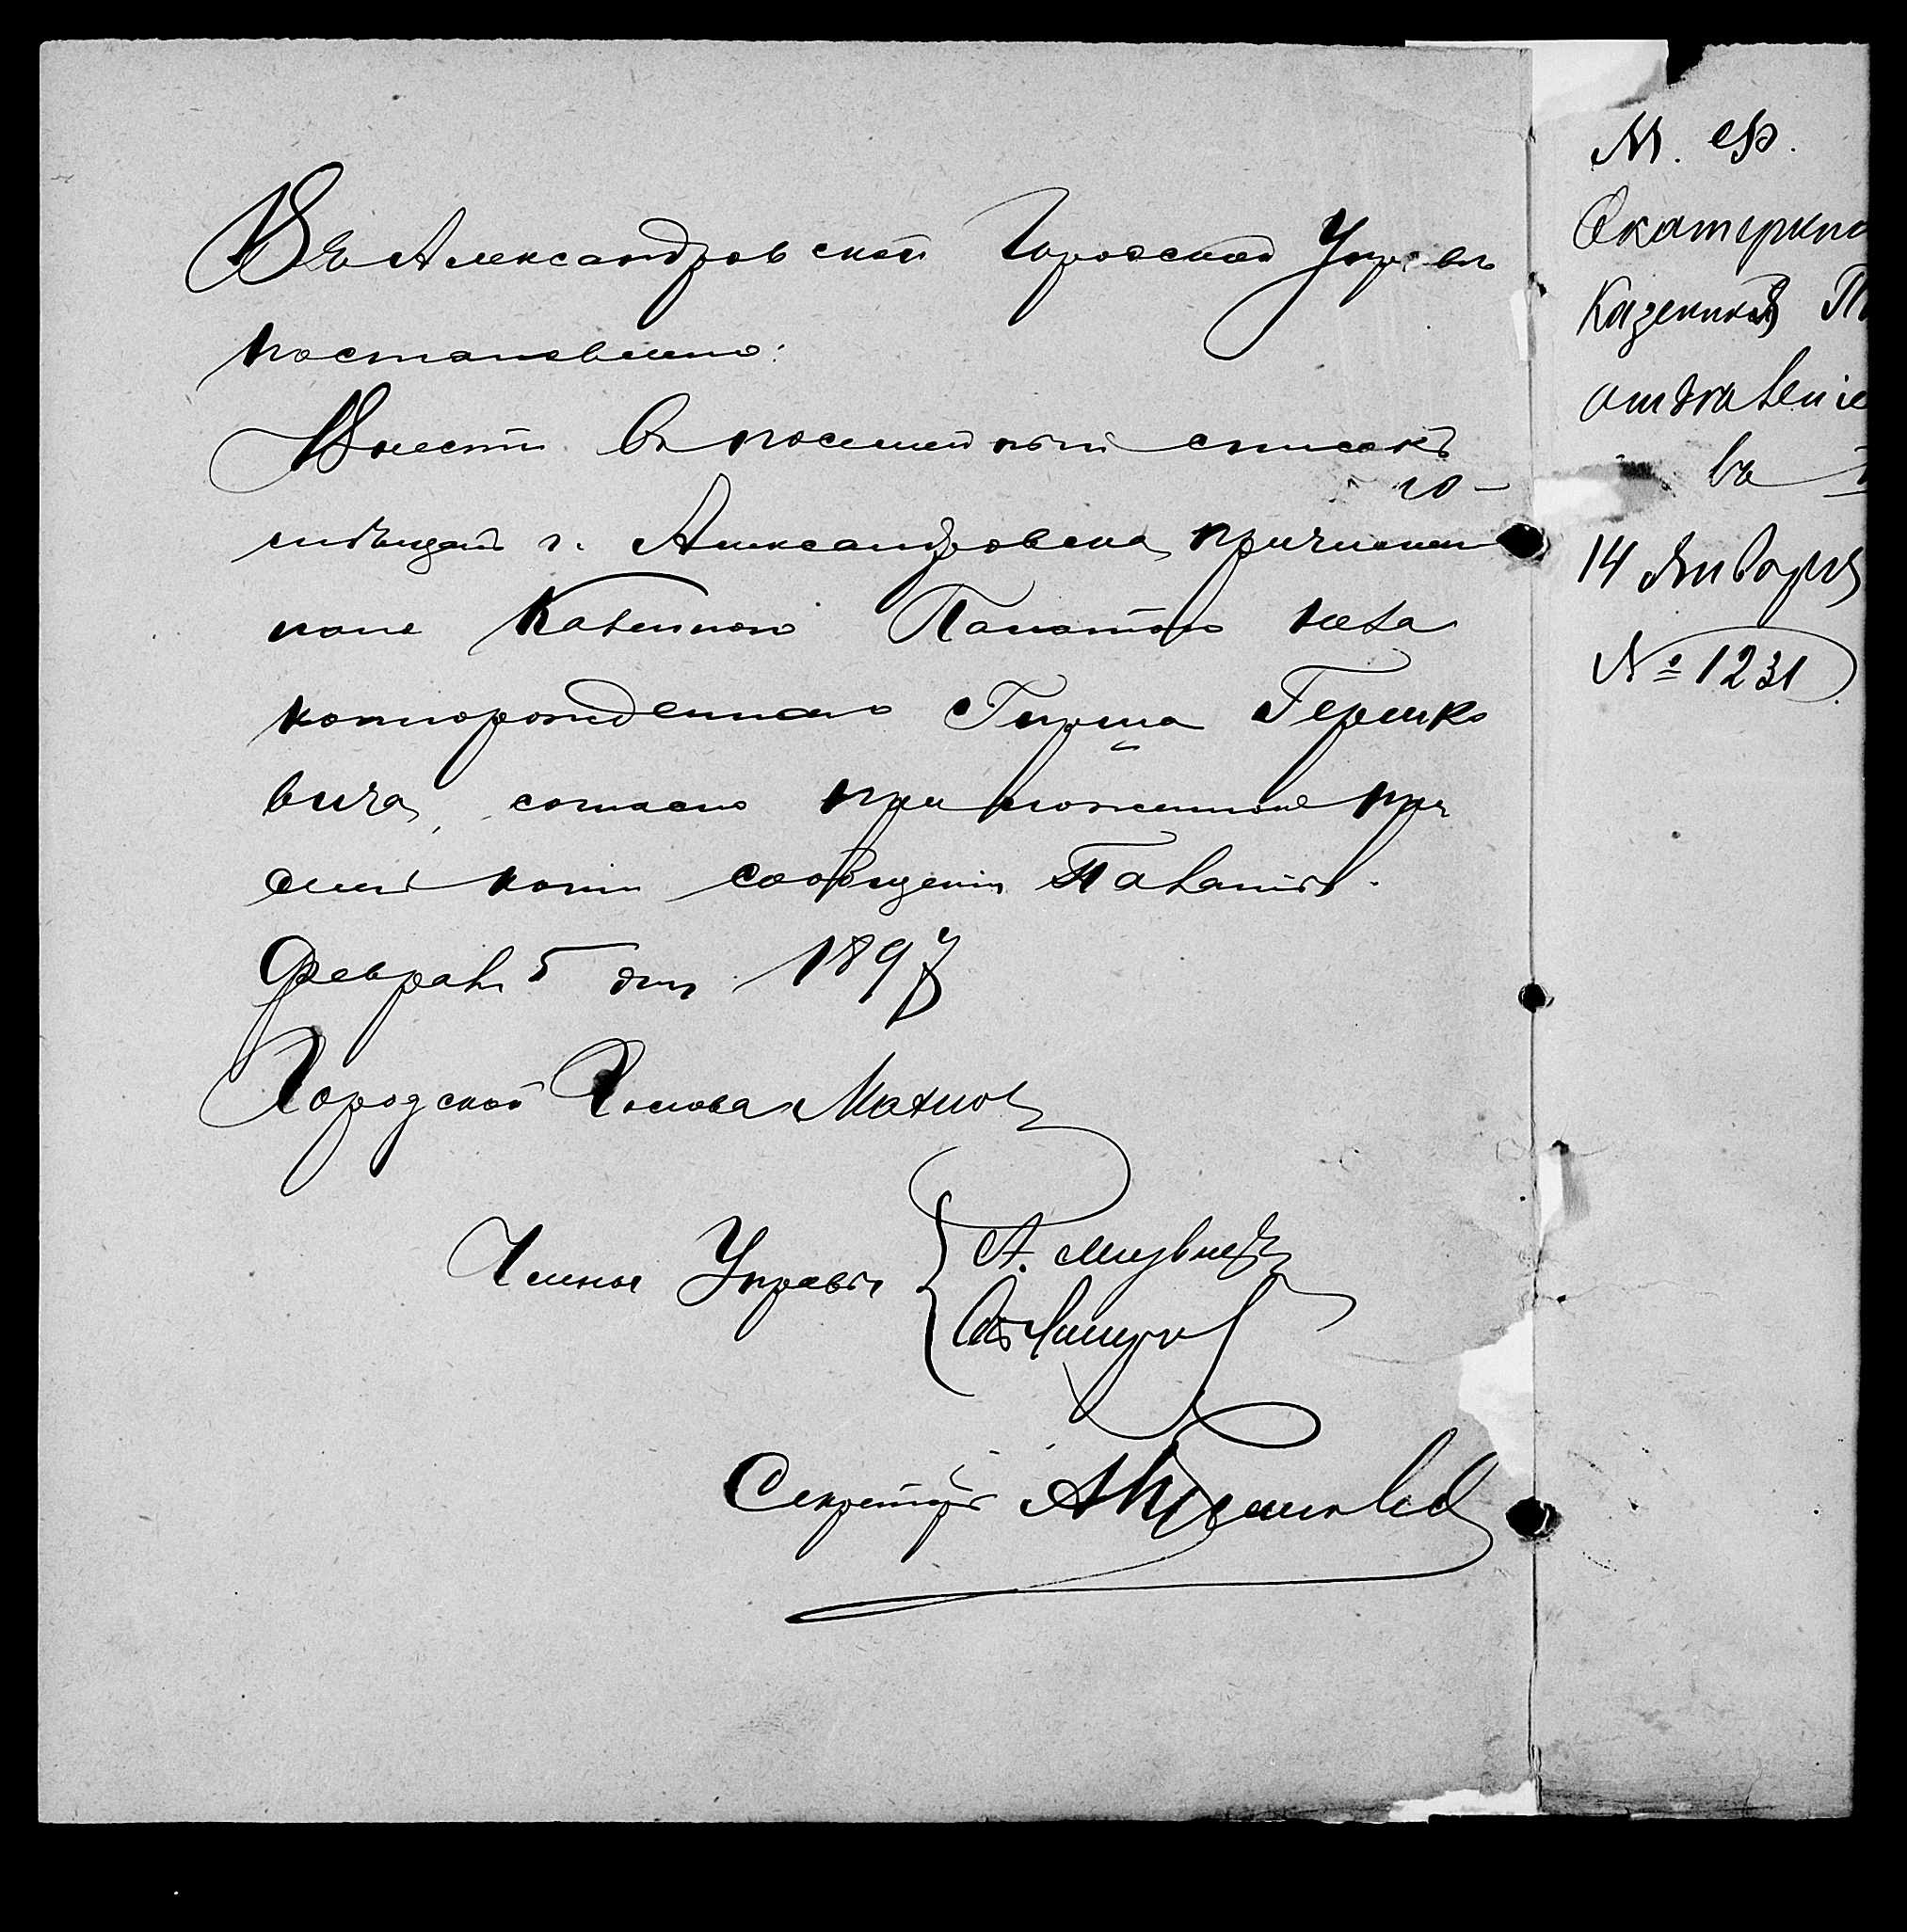 Въ Александровской Городской Управѣ
постановлено:
Внести въ посемейный списокъ
мѣщанъ г. Александровска, причислен
наго Казенною Палатою неза
коннорожденнаго Гирша Гершко
вича, согласно приложенной при
семъ копіи сообщенія Палаты.
Февраля 5 дня 1897
Городской Голова Махнов
Члены Управы
А.
Секретарь
М. Ф.
Екатерино
Казенная П
отдѣленіе
14 Января
№ 1231